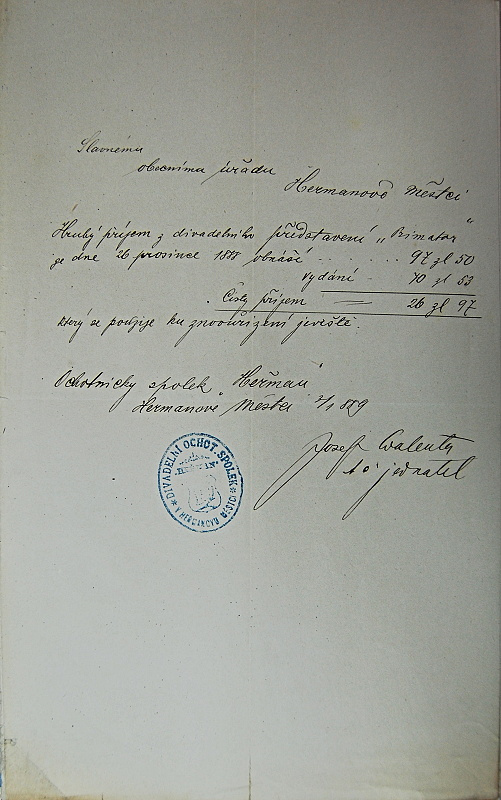 Slavnému
obecnímu úřadu
Heřmanově Městci
Hrubý příjem z divadelního představení „
ze dne 26 prosince 1888 obnáší . . . . . 97 zl 50
vydání . 70 zl 53
Čistý příjem — 26 zl 97
který se použije ku znovuřízení jeviště.
Ochotnický spolek „Heřman"
Heřmanově Městci 2/1 1889
Josef Valenta
t. č. jednatel
DIVADELNÍ OCHOT. SPOLEK
V HEŘMANOVU MĚSTCI